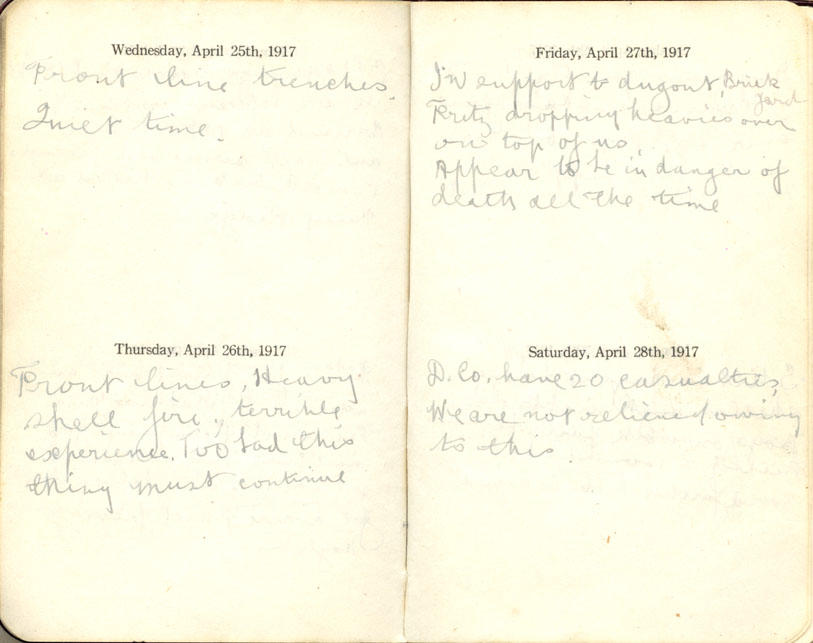 Wednesday, April 25th, 1917
Front line trenches.
Quiet time.
Thursday, April 26th, 1917
Front lines, Heavy
shell fire, terrible
experience. Too bad this
thing must continue
Friday, April 27th, 1917
In support to dugout, Brick
Yard
Fritz dropping heavies over
on top of us.
Appear to be in danger of
death all the time
Saturday, April 28th, 1917
D. Co. have 20 casualties,
We are not relieved owing
to this.